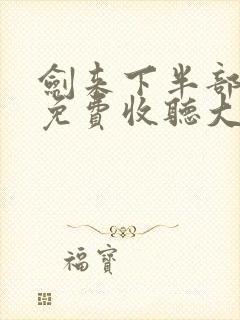 劍来下半部
免費收聽大
福寶